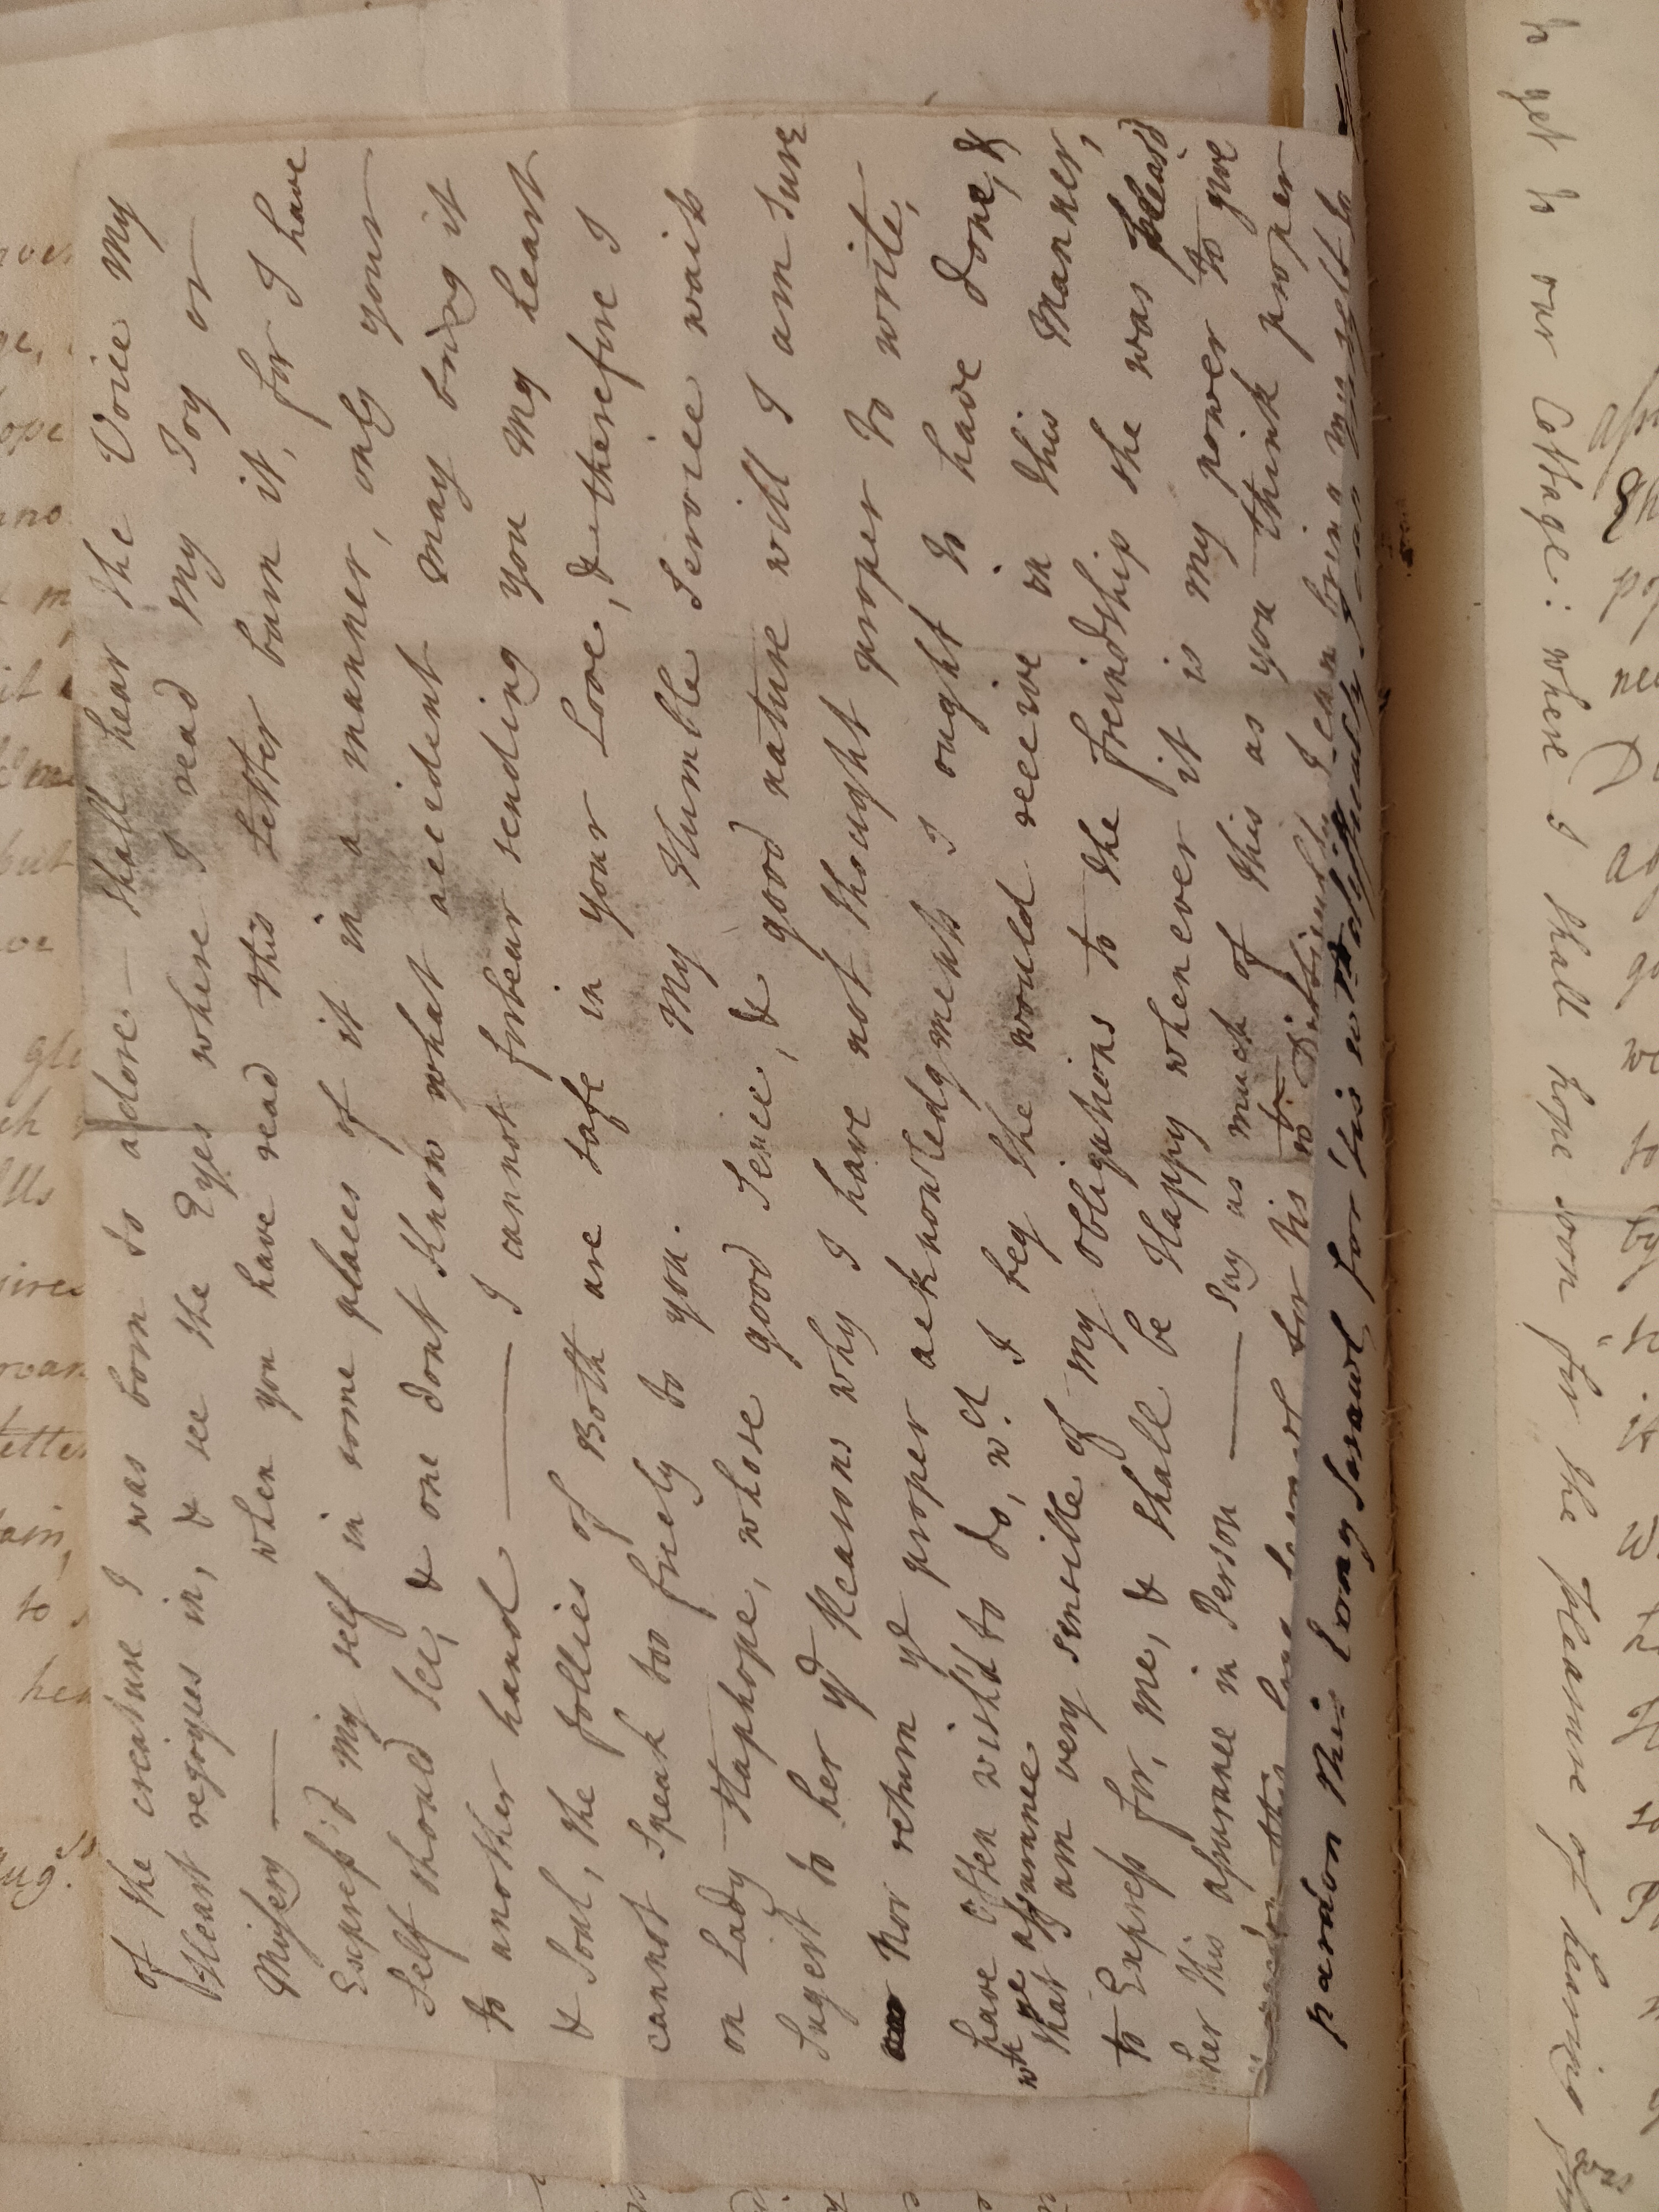 of the creature I was born to adore — shall hear the Voice my
Heart regoyces in, & see the Eyes where I read my Joy or
Misery — when you have read this Letter burn it, for I have
Express'd my self in some places of it in a manner, only your
Self should see, & one dont Know what accident may bring it
to another hand — I cannot forbear sending you my heart
& Soul, the follies of Both are safe in your Love, & therefore I
cannot Speak too freely to you. My Humble Service waits
on Lady Staphope, whose good Sence, & good nature will I am sure
Sugest to her ye Reasons why I have not thought proper to write,
Nor return ye proper acknowledgments I ought to have done, &
have Often wish'd to do, wch I beg she would receive in this Manner,
wth ye assurance
that I am very sensible of my Obligations to the freindship she was pleas'd
to Express for, me, & shall be Happy whenever it is my power to give
her this assurance in Person — Say as much of this as you think proper
pardon this long scrawl for tis wth Difficulty I can bring my self to
pardon this long scrawl, for 'tis wth difficulty I can
to get to our Cottage: where I shall hope soon for the pleasure of hearing from